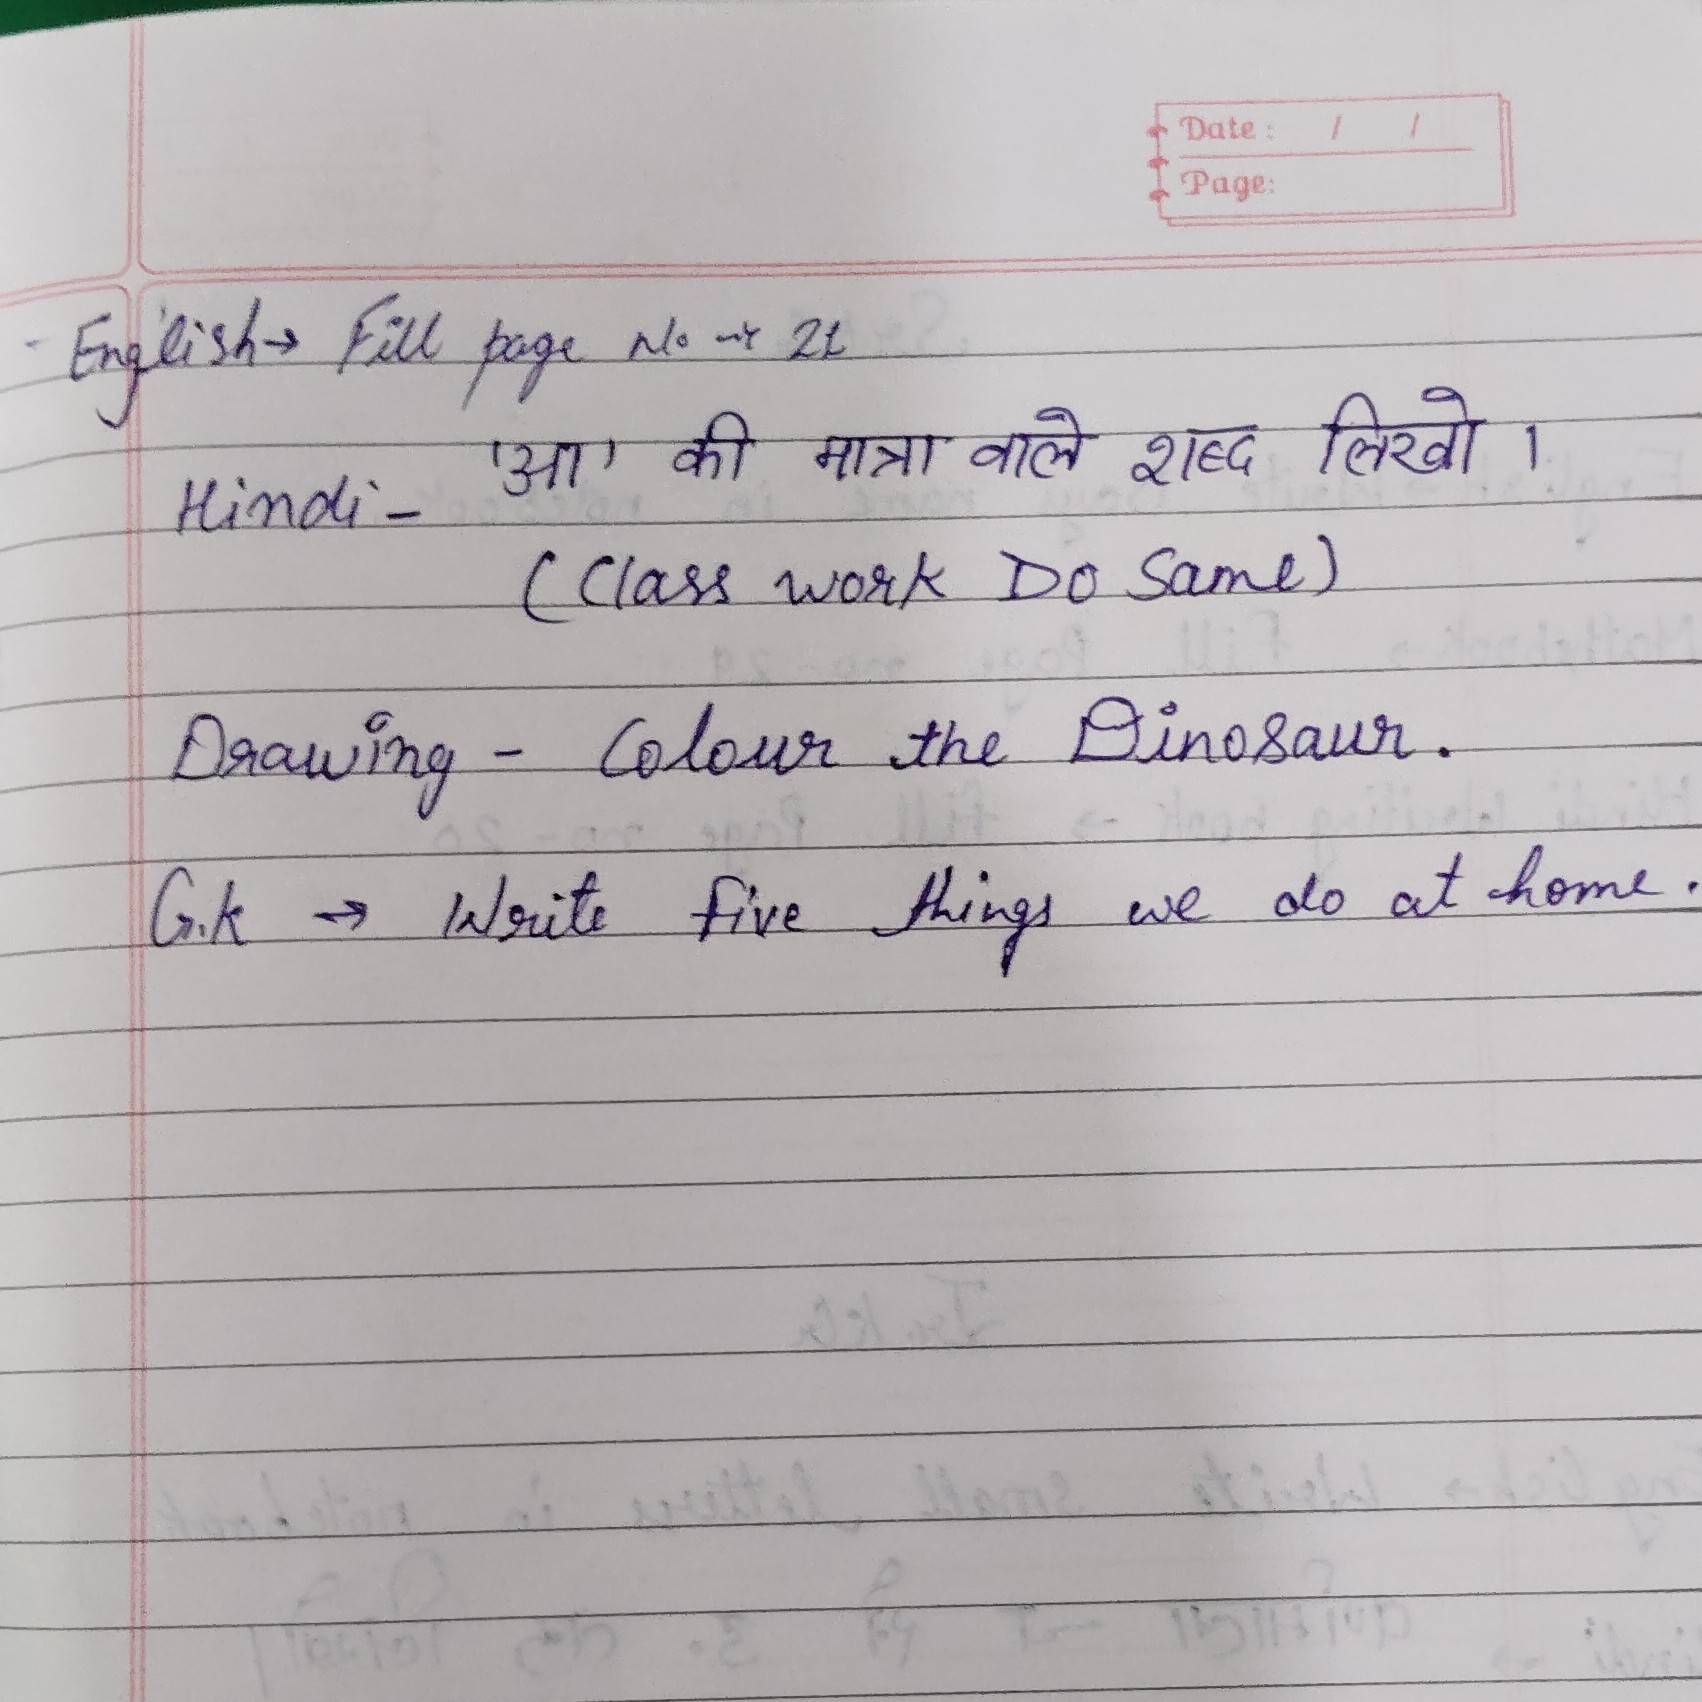 Date: / /
Page:
English → Fill page No → 21
'आ' की मात्रा वाले शब्द लिखो ।
Hindi -
(Class work Do Same)
Drawing - Colour the Dinosaur.
G.K → Write five things we do at home.